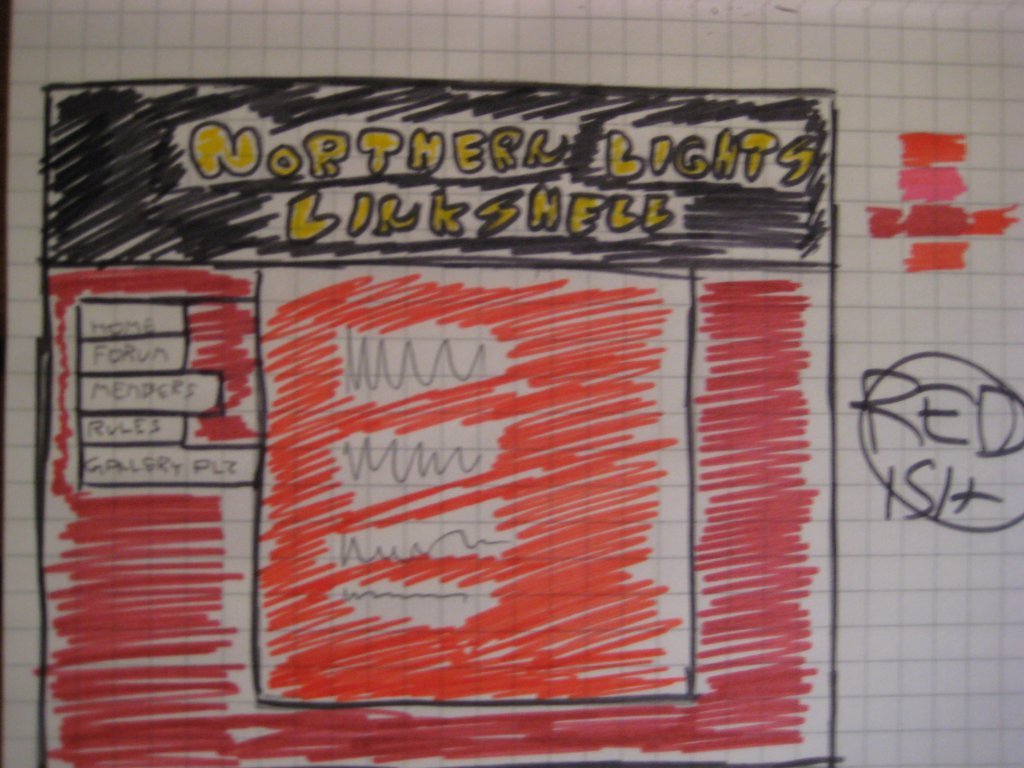 NORTHERN LIGHTS
LINKSHELL
HOME
FORUM
MEMBERS
RULES
GALLERY PLZ
RED
ISH